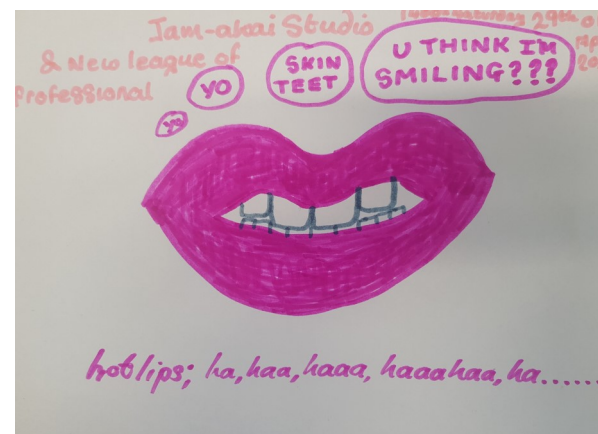 Jam-akai Studio
& New league of
Professional
Saturday 29th
yo
yo
SKIN
TEET
U THINK I'M
SMILING???
hotlips; ha, haa, haaa, haaahaa, ha......